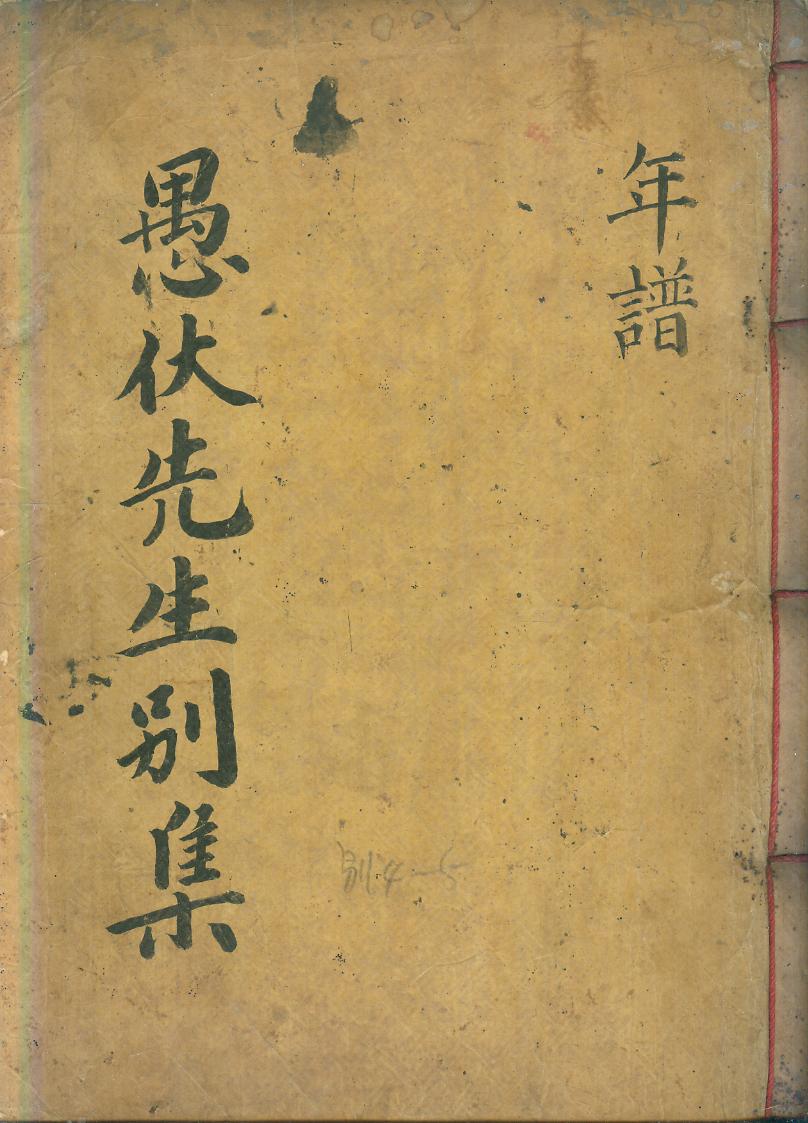 年譜
愚伏先生別集
別4-5